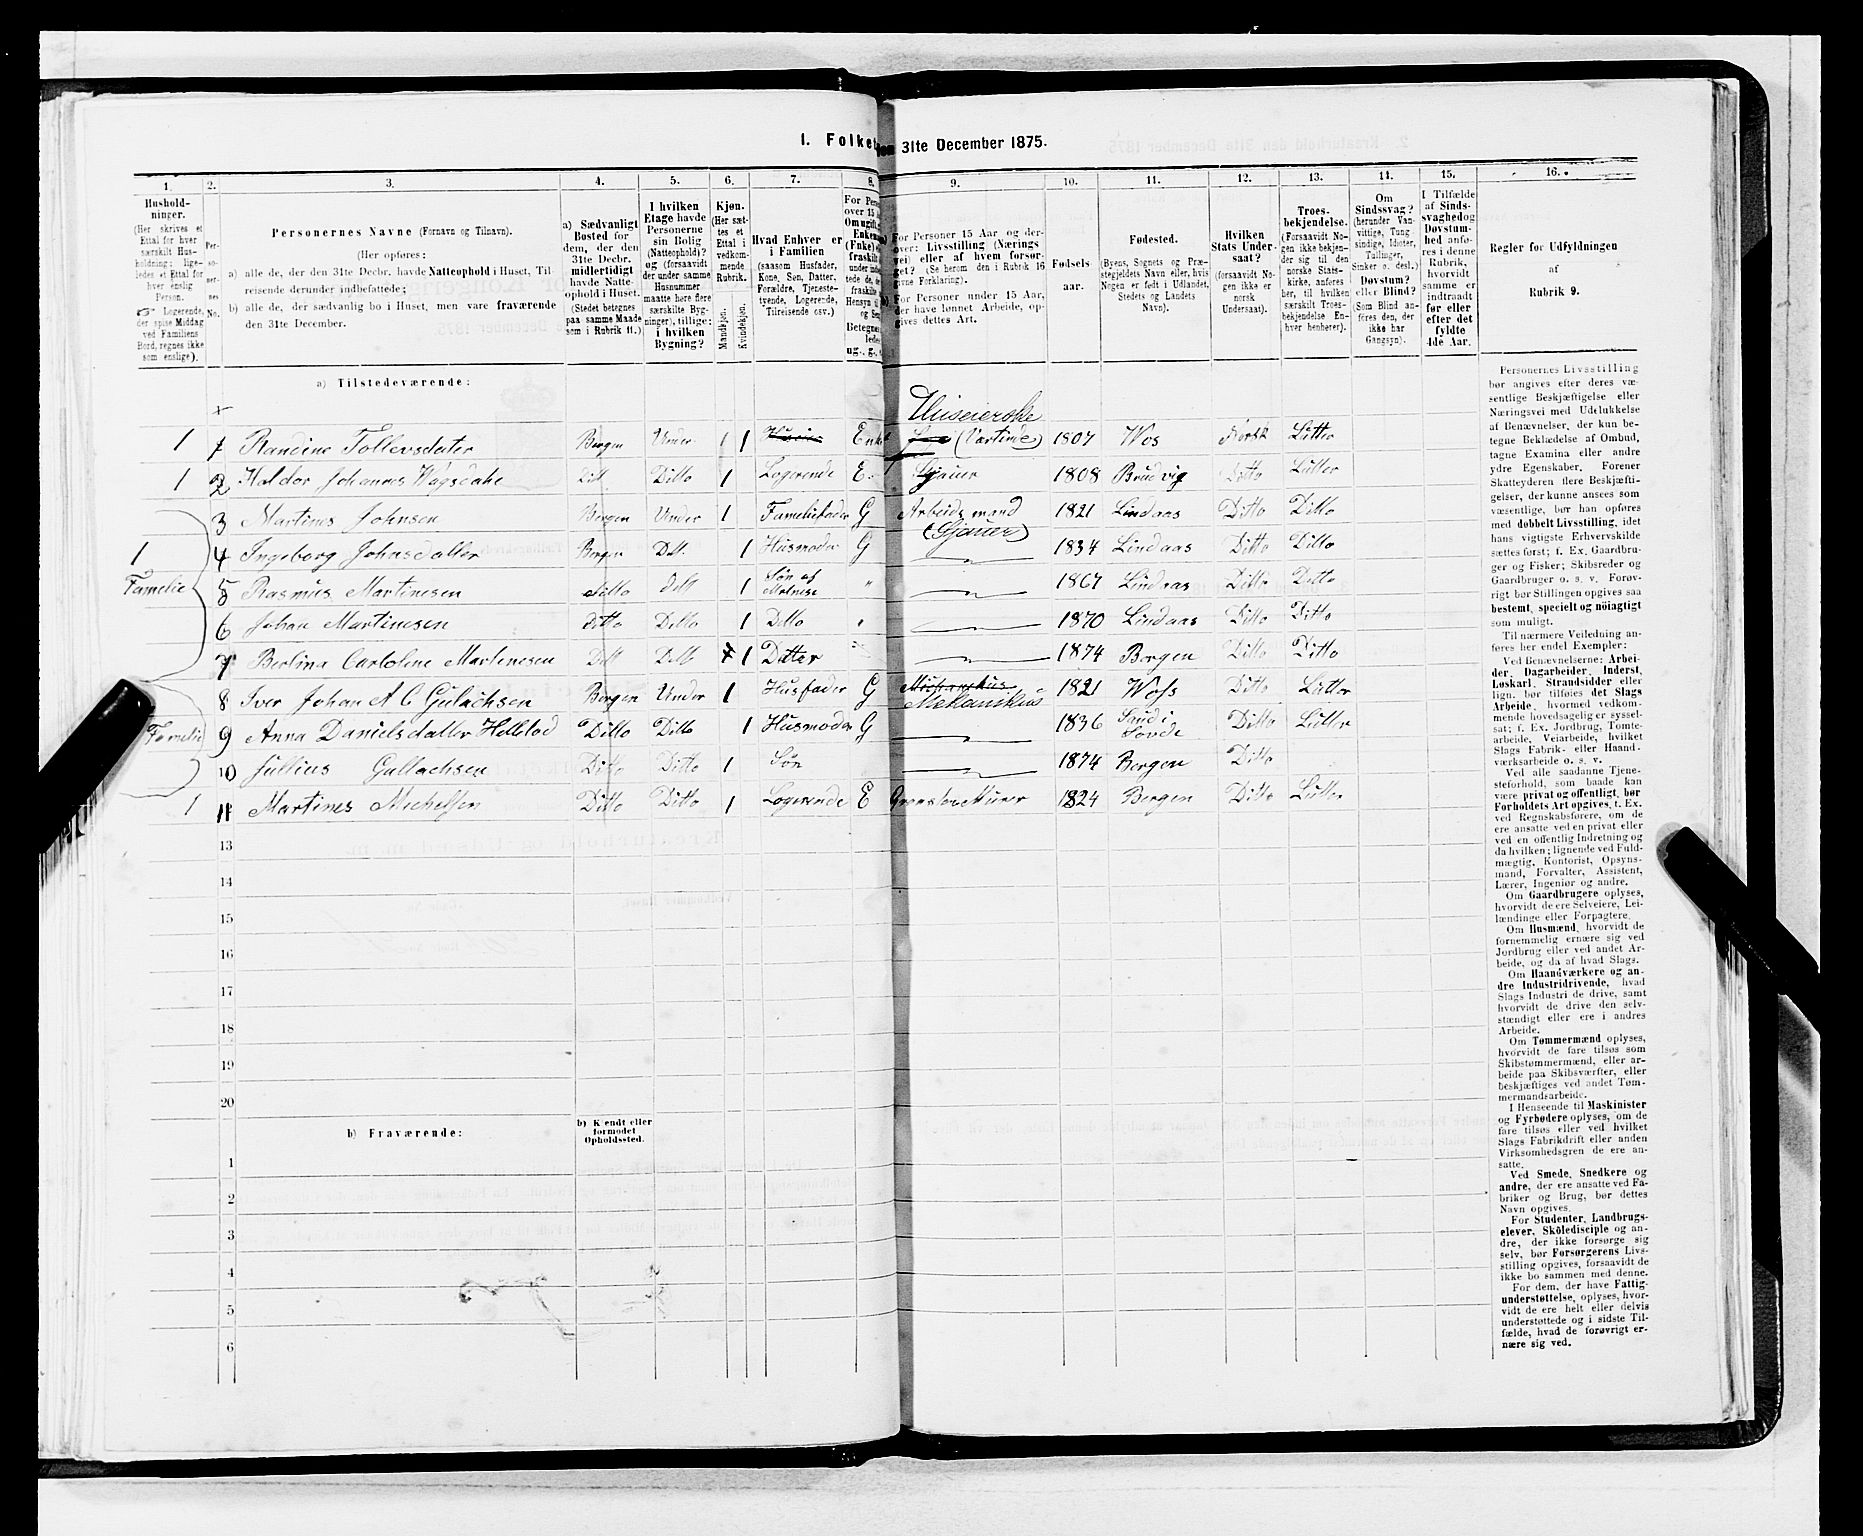 1. Folket
som 31te December 1875.
1. 2. 3. 4. 5. 6. 7. 8. 9. 10. 11. 12. 13. 14. 15. 16.
Husholdninger. (Her skrives et Ettal for hver særskilt Husholdning; ligeledes et Ettal for hver enslig Person. Logerende, der spise Middag ved Familiens Bord, regnes ikke som enslige).
Personernes No.
Personernes Navne (Fornavn og Tilnavn).
(Her opføres:
a) alle de, der den 31te Decbr. havde Natteophold i Huset, Tilreisende derunder indbefattede;
b) alle de, der sædvanlig bo i Huset, men vare fraværende den 31te December.
a) Sædvanligt Bosted for dem, der den 31te Decbr. midlertidigt havde Natteophold i Huset. (Stedet betegnes paa samme Maade som i Rubrik 11.)
I hvilken Etage havde Personerne sin Bolig (Natteophold)? og (forsaavidt der under samme Husnummer maatte høre flere særskilte Bygninger), tillige: i hvilken Bygning?
Kjøn. (Her sættes et Ettal i vedkommende Rubrik.
Mandkjøn. Kvindekjøn.
Hvad Enhver er i Familien (saasom Husfader, Kone, Søn, Datter, Forældre, Tjenestetyende, Logerende, Tilreisende osv.)
For Personer 15 Aar og derover: Livsstilling (Næringsvei) eller af hvem forsørget? (Se herom den i Rubrik 16 givne Forklaring).
For Personer under 15 Aar, der have lønnet Arbeide, opgives dettes Art.
Fødselsaar.
Fødested. (Byens, Sognets og Præstegjeldets Navn eller, hvis Nogen er født i Udlandet, Stedets og Landets Navn).
Hvilken Stats Undersaat? (forsaavidt Nogen ikke er norsk Undersaat).
Troesbekjendelse. (Forsaavidt Nogen ikke bekjender sig til den norske Statskirke, anføres her, til hvilken særskilt Troesbekjendelse Enhver henhører).
Om Sindssvag? (herunder Vanvittige, Tungsindige, Idioter, Tullinger, Sinker o. desl.) Døvstum? eller Blind? (Som Blind anføres den, der ikke har Gangsyn).
I Tilfælde af Sindssvaghed og Døvstumhed anføres i denne Rubrik, hvorvidt samme er indtraadt før eller efter det fyldte 4de Aar.
Regler for Udfyldningen af Rubrik 9.
a) Tilstedeværende:
Huseierske
1 1 Randine Tollevsdater Bergen Under 1 Enke (Værtinde) 1807 Wos Norsk Lutter
1 2 Haldor Johannes Wagsdahl Ditto Ditto 1 Logerende E. Gjauer 1808 Brudvig Ditto Lutter
3 Martines Johnsen Bergen Under 1 Familiefader G Arbeidsmand (Gjauer) 1821 Lindaas Ditto Ditto
1 Familie 4 Ingeborg Johnsdatter Bergen Ditt. 1 Husmoder G 1834 Lindaas Ditto Ditto
5 Rasmus Martinesen ditto ditt 1 Søn af 1867 Lindaas Ditto Ditto
6 Johan Martinesen ditto Ditto 1 Ditto 1870 Lindaas Ditto Ditto
7 Berlina Carloline Martinesen Ditt Ditt 1 Datter 1874 Bergen Ditto Ditto
8 Iver Johan A C Gulachsen Bergen Under 1 Husfader G Mekanikus 1821 Woss Ditto Lutter
Familie 9 Anna Danielsdatter Hellstad Ditto Ditto 1 Husmoder G 1836 Ditto Lutter
10 Jullius Gullachsen Ditto Ditto 1 Søn 1874 Bergen Ditto
1 11 Martines Michelsen Ditto Ditto 1 Logerende E 1824 Bergen Ditto Lutter
13
14
15
16
17
18
19
20
b) Fraværende:
b) Kjendt eller formodet Opholdssted.
1
2
3
4
5
6
Personernes Livsstilling
bør angives efter deres væ-
sentlige Beskjæftigelse eller
Næringsvei med Udelukkelse
af Benævnelser, der kun be-
tegne Beklædelse af Ombud,
tagne Examina eller andre
ydre Egenskaber. Forener
Skatteyderen flere Beskjæfti-
gelser, der kunne ansees som
væsentlige, bør han opføres
med dobbelt Livsstilling, idet
hans vigtigste Erhvervskilde
sættes først; f. Ex. Gaardbru-
ger og Fisker; Skibsreder og
Gaardbruger o. s. v. Forøv-
rigt bør Stillingen opgives saa
bestemt, specielt og nöiagtigt
som muligt.
Til nærmere Veiledning an-
føres her endel Exempler:
Ved Benævnelserne: Arbei-
der, Dagarbeider, Inderst,
Løskarl, Strandsidder eller
lign. bør tilføies det Slags
Arbeide, hvormed vedkom-
mende hovedsagelig er syssel-
sat; f. Ex. Jordbrug, Tomte-
arbeide, Veiarbeide, hvilket
Slags Fabrik- eller Haand-
værksarbeide o. s. v.
Ved alle saadanne Tjene-
steforhold, som baade kan
være privat og offentligt, bør
Forholdets Art opgives, t. Ex.
ved Regnskabsførere, om de
ere ansatte ved en privat eller
ved en offentlig Indretning og
da hvilken; lignende ved Fuld-
mægtig, Kontorist, Opsyns-
mand, Forvalter, Assistent,
Lærer, Ingeniør og andre.
Om Gaardbrugere oplyses,
hvorvidt de ere Selveiere, Lei-
lændinge eller Forpagtere.
Om Husmænd, hvorvidt de
fornemmelig ernære sig ved
Jordbrug eller ved andet Ar-
beide, og da af hvad Slags.
Om Haandværkere og an-
dre Industridrivende, hvad
Slags Industri de drive, samt
hvorvidt de drive den selv-
stændigt eller ere i andres
Arbeide.
Om Tømmermænd oplyses,
hvorvidt de fare tilsøs som
Skibstømmermænd, eller ar-
beide paa Skibsværfter, eller
beskjæftiges ved andet Tøm-
mermandsarbeide.
I Henseende til Maskinister
og Fyrbødere oplyses, om de
fare tilsøs eller ved hvilket
Slags Fabrikdrift eller anden
Virksomhedsgren de ere an-
satte.
Ved Smede, Snedkere og
andre, der ere ansatte ved Fa-
briker og Brug, bør dettes
Navn opgives.
For Studenter, Landbrugs-
elever, Skôledisciple og an-
dre, der ikke forsørge sig
selv, bør Forsørgerens Livs-
stilling opgives, forsaavidt de
ikke bo sammen med denne.
For dem, der have Fattig-
understøttelse, oplyses, hvor-
vidt de ere helt eller delvis
understøttede og i sidste Til-
fælde, hvad de forøvrigt er-
nære sig ved.